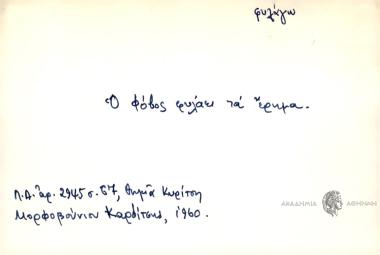 φυλάγω
Ὁ φόβος φυλάει τά ἔρημα.
Λ.Α. ἀρ. 2945 σ. 57, Θημιᾶ Κυρίτση
Μορφοβούνιον Καρδίτσης, 1960.
ΑΚΑΔΗΜΙΑ ΑΘΗΝΩΝ